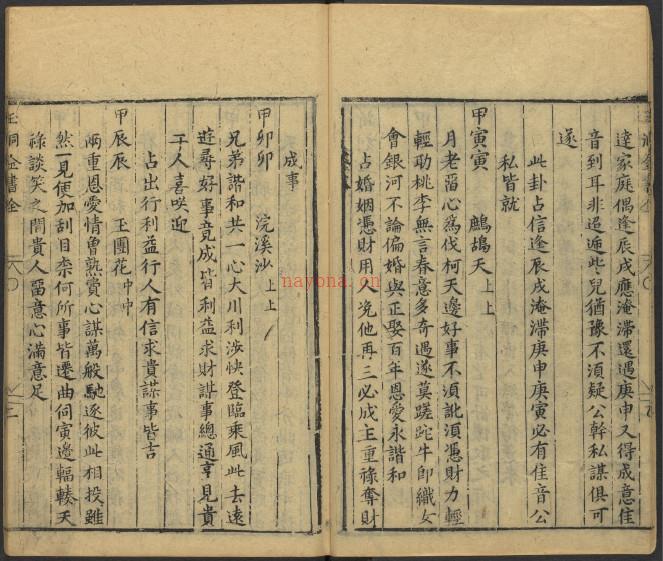 達家庭偶逢辰戌應淹滯還遇庚申又得成意佳
音到耳非迢遞些兒猶豫不須疑公幹私謀俱可
遂
此卦占信逢辰戌淹滯庚申庚寅必有佳音公
私皆就
甲寅寅 鷓鴣天上上
月老留心為伐柯天邊好事不須訛須憑財力輕
輕助桃李無言春意多奇遇遂莫蹉跎牛郎織女
會銀河不論偏婚與正娶百年恩愛永諧和
占婚姻憑財用人浼他再三必成主重祿奪財
成事
甲卯卯 浣溪沙上上
兄弟諧和共一心大川利涉快登臨乘風此去遠
遊尋好事竟成皆利益求財謀事總通亨見貴
千人喜咲迎
占出行利益行人有信求貴謀事皆吉
甲辰辰 玉團花中中
兩重恩愛情曾熟賞心謀萬般馳逐彼此相投雖
然一見便加刮目柰何所事皆遷曲伺寅邊輻輳天
祿談笑之間貴人留意心滿意足
玉洞金書全
nayona.cn